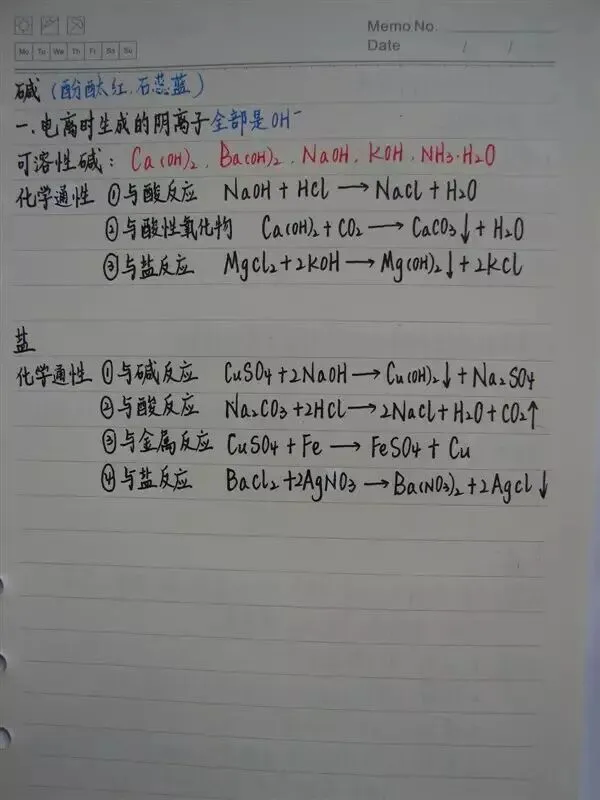 Memo No.
Mo Tu We Th Fr Sa Su
Date / /
碱（酚酞红,石蕊蓝）
一、电离时生成的阴离子全部是OH⁻
可溶性碱：Ca(OH)₂、Ba(OH)₂、NaOH、KOH、NH₃·H₂O
化学通性 ①与酸反应 NaOH + HCl → NaCl + H₂O
②与酸性氧化物 Ca(OH)₂ + CO₂ → CaCO₃↓ + H₂O
③与盐反应 MgCl₂ + 2KOH → Mg(OH)₂↓ + 2KCl
盐
化学通性 ①与碱反应 CuSO₄ + 2NaOH → Cu(OH)₂↓ + Na₂SO₄
②与酸反应 Na₂CO₃ + 2HCl → 2NaCl + H₂O + CO₂↑
③与金属反应 CuSO₄ + Fe → FeSO₄ + Cu
④与盐反应 BaCl₂ + 2AgNO₃ → Ba(NO₃)₂ + 2AgCl↓